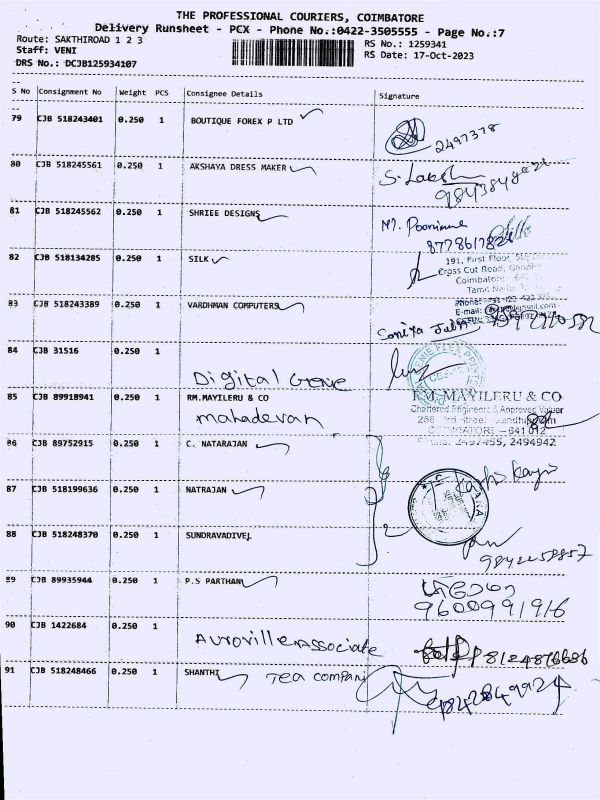 THE PROFESSIONAL COURIERS, COIMBATORE
Delivery Runsheet - PCX - Phone No.:0422-3505555 - Page No.:7
Route: SAKTHIROAD 1 2 3
RS No.: 1259341
Staff: VENI
RS Date: 17-Oct-2023
DRS No.: DCJB125934107
S No Consignment No Weight PCS Consignee Details Signature
79 CJB 518243401 0.250 1 BOUTIQUE FOREX P LTD
2497378
80 CJB 518245561 0.250 1 AKSHAYA DRESS MAKER
81 CJB 518245562 0.250 1 SHRIEE DESIGNS
82 CJB 518134285 0.250 1 SILK
191, First Floor,
Cross Cut Road,
Coimbatore
Tamil
83 CJB 518243389 0.250 1 VARDHMAN COMPUTERS
Phone:
E-mail:
84 CJB 31516 0.250 1
Digital Genie
85 CJB 89918941 0.250 1 RM.MAYILERU & CO
RM. MAYILERU & CO
Mahadevan
Chartered Engineers & Approved Valuer
COIMBATORE - 641 012
2497455, 2494942
86 CJB 89752915 0.250 1 C. NATARAJAN
87 CJB 518199636 0.250 1 NATRAJAN
88 CJB 518248370 0.250 1 SUNDRAVADIVEL
89 CJB 89935944 0.250 1 P.S PARTHAN
9600991916
90 CJB 1422684 0.250 1
Auroville Associate
8124876686
91 CJB 518248466 0.250 1 SHANTHI Tea company